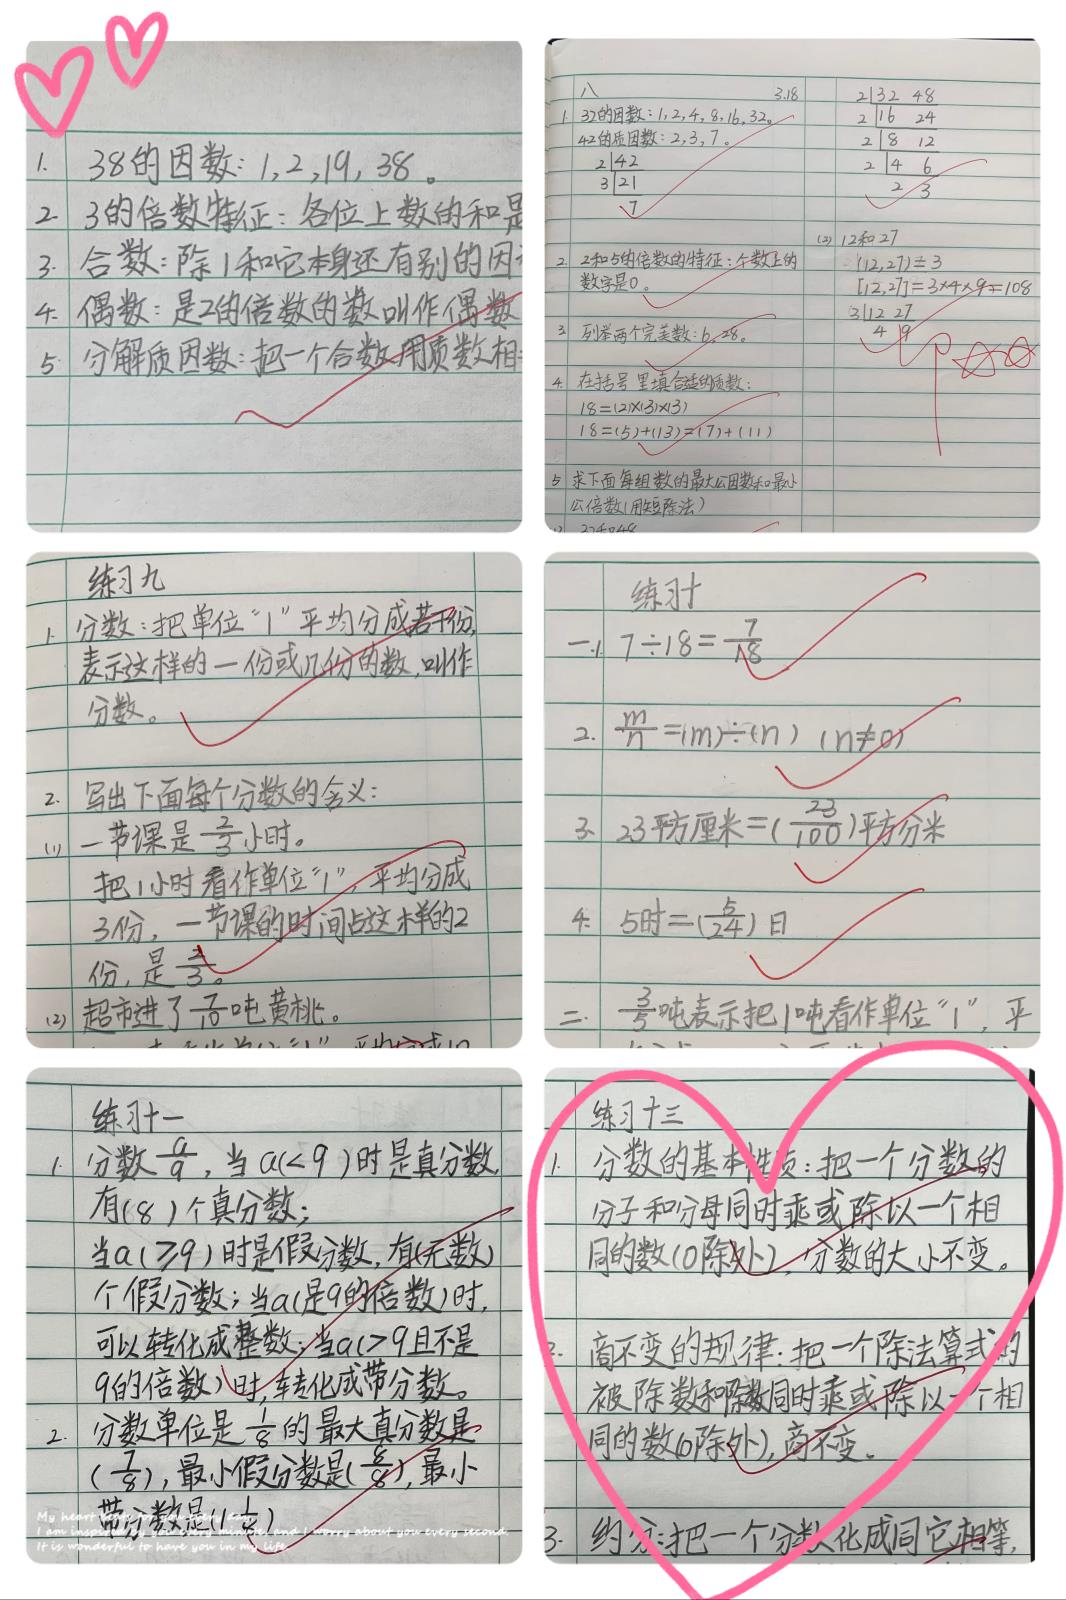 1. 38的因数：1,2,19,38。
2. 3的倍数特征：各位上数的和是
3. 合数：除1和它本身还有别的因
4. 偶数：是2的倍数的数叫作偶数
5. 分解质因数：把一个合数用质数相
八 3.18
1. 32的因数：1,2,4,8,16,32。
42的质因数：2,3,7。
2 42
3 21
7
2. 2和5的倍数的特征：个数上的
数字是0。
3. 列举两个完美数：6,28。
4. 在括号里填合适的质数：
18=(2)×(3)×(3)
18=(5)+(13)=(7)+(11)
5 求下面每组数的最大公因数和最小
公倍数(用短除法)
32和48
2 32 48
2 16 24
2 8 12
2 4 6
2 3
(2) 12和27
(12,27)=3
[12,27]=3×4×9=108
3 12 27
4 9
练习九
1. 分数：把单位“1”平均分成若干份,
表示这样的一份或几份的数,叫作
分数。
2. 写出下面每个分数的含义：
(1) 一节课是2/3小时。
把1小时看作单位“1”,平均分成
3份，一节课的时间占这样的2
份,是2/3。
(2) 超市进了7/10吨黄桃。
练习十
一.1. 7÷18=7/18
2. m/n=(m)÷(n) (n≠0)
3. 23平方厘米=(23/100)平方分米
4. 5时=(5/24)日
二. 3/5吨表示把1吨看作单位“1”，平
练习十一
1. 分数a/9,当a(<9)时是真分数,
有(8)个真分数；
当a(≥9)时是假分数,有(无数)
个假分数；当a(是9的倍数)时,
可以转化成整数；当a(>9且不是
9的倍数)时,转化成带分数。
2. 分数单位是1/8的最大真分数是
(7/8),最小假分数是(8/8),最小
带分数是(1 1/8)
My heart
I am and I worry about you every second.
It is wonderful to have you in my life
练习十三
1. 分数的基本性质：把一个分数的
分子和分母同时乘或除以一个相
同的数(0除外)，分数的大小不变。
2. 商不变的规律：把一个除法算式的
被除数和除数同时乘或除以一个相
同的数(0除外),商不变。
3. 约分：把一个分数化成同它相等,